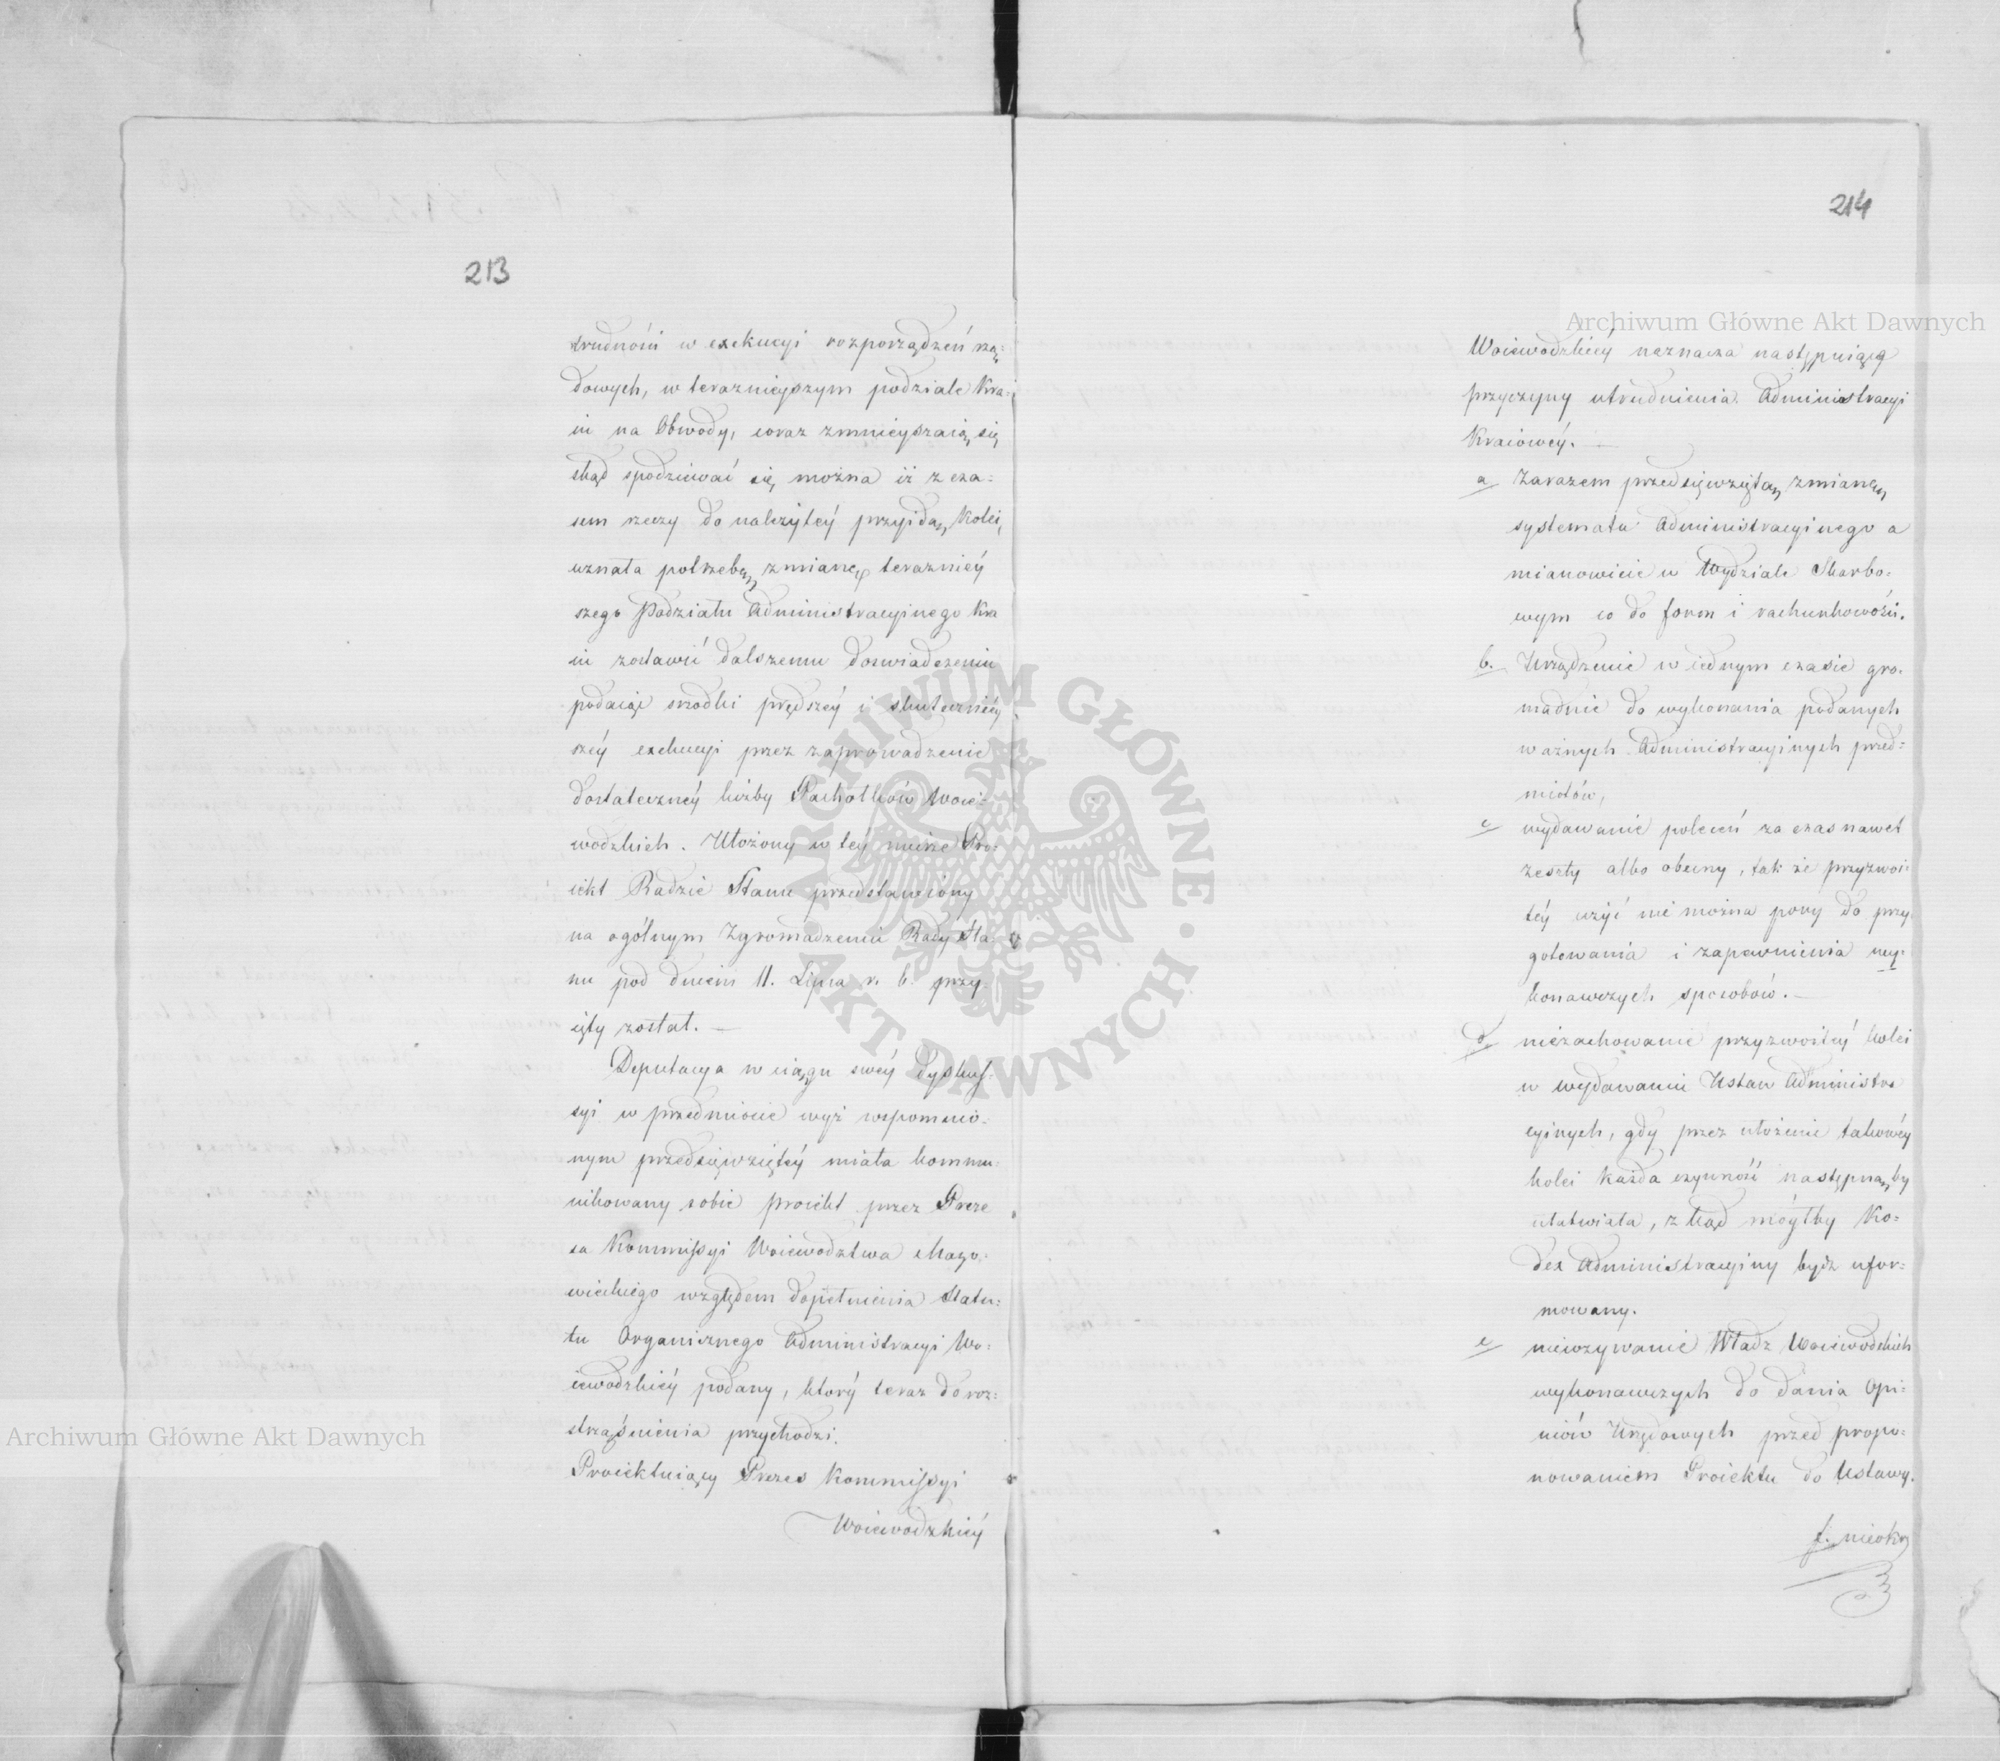 213
trudności w exekucyi rozporządzeń rzą=
dowych, w teraznieyszym podziale Kra=
iu na Obwody, coraz zmnieyszaią się
skąd spodziewać się można iż z cza=
sem rzeczy do należytéy przyidą Kolei,
uznała potrzebę zmiany terazniéy
szego Podziału Administracyinego Kra
iu zostawić dalszemu doswiadczeniu
podaiąc srzodki prędszéy i skuteczniéy
széy exekucyi przez zaprowadzenie
dostatecznéy liczby Pachołków Woie=
wodzkich. Ułożony w téy mierze Pro=
iekt Radzie Stanu przedstawiony
na ogólnym Zgromadzeniu Rady Sta=
nu pod dniem 11. Lipca r. b. przy
ięty został. —
Deputacya w ciągu swéy dyskus=
syi w przedmiocie wyż wspomnio=
nym przedsięwziętéy miała kommu=
nikowany sobie proiekt przez Preze
sa Kommissyi Woiewodztwa Mazo=
wieckiego względem dopełnienia Statu=
tu Organicznego Administracyi Wo=
iewodzkiéy podany, który teraz do roz=
strząśnienia przychodzi.
Proiektuiący Prezes Kommissyi
Woiewodzkiéy
214
Woiewodzkiéy naznacza następuiące
przyczyny utrudnienia Administracyi
Kraiowéy. —
a Zarazem przedsięwziętą zmianę
systematu Administracyinego a
mianowicie w Wydziale Skarbo=
wym co do form i rachunkowości.
b. Urządzenie w iednym czasie gro=
madnie do wykonania podanych
ważnych Administracyinych przed=
miotów,
c wydawanie poleceń za czas nawet
zeszły albo obecny, tak że przyzwoi=
téy użyć nie można pory do przy=
gotowania i zapewnienia wy=
konawczych sposobów. —
d niezachowanie przyzwoitéy kolei
w wydawaniu Ustaw Administra
cyinych, gdy przez ułożenie takowéy
kolei każda czynność następną by
ułatwiała, z kąd mógłby Ko=
dex Administracyiny bydz ufor=
mowany.
e niewzywanie Władz Woiewodzkich
wykonawczych do dania Opi=
niów Urzędowych przed propo=
nowaniem Proiektu do Ustawy.
Archiwum Główne Akt Dawnych
Archiwum Główne Akt Dawnych
ARCHIWUM GŁÓWNE · AKT DAWNYCH ·